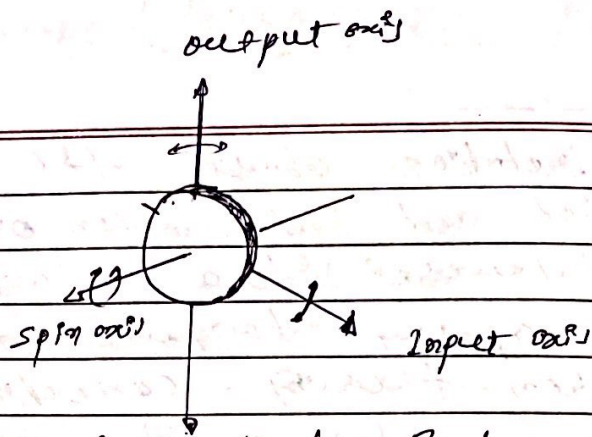 output axis
Spin axis
Input axis